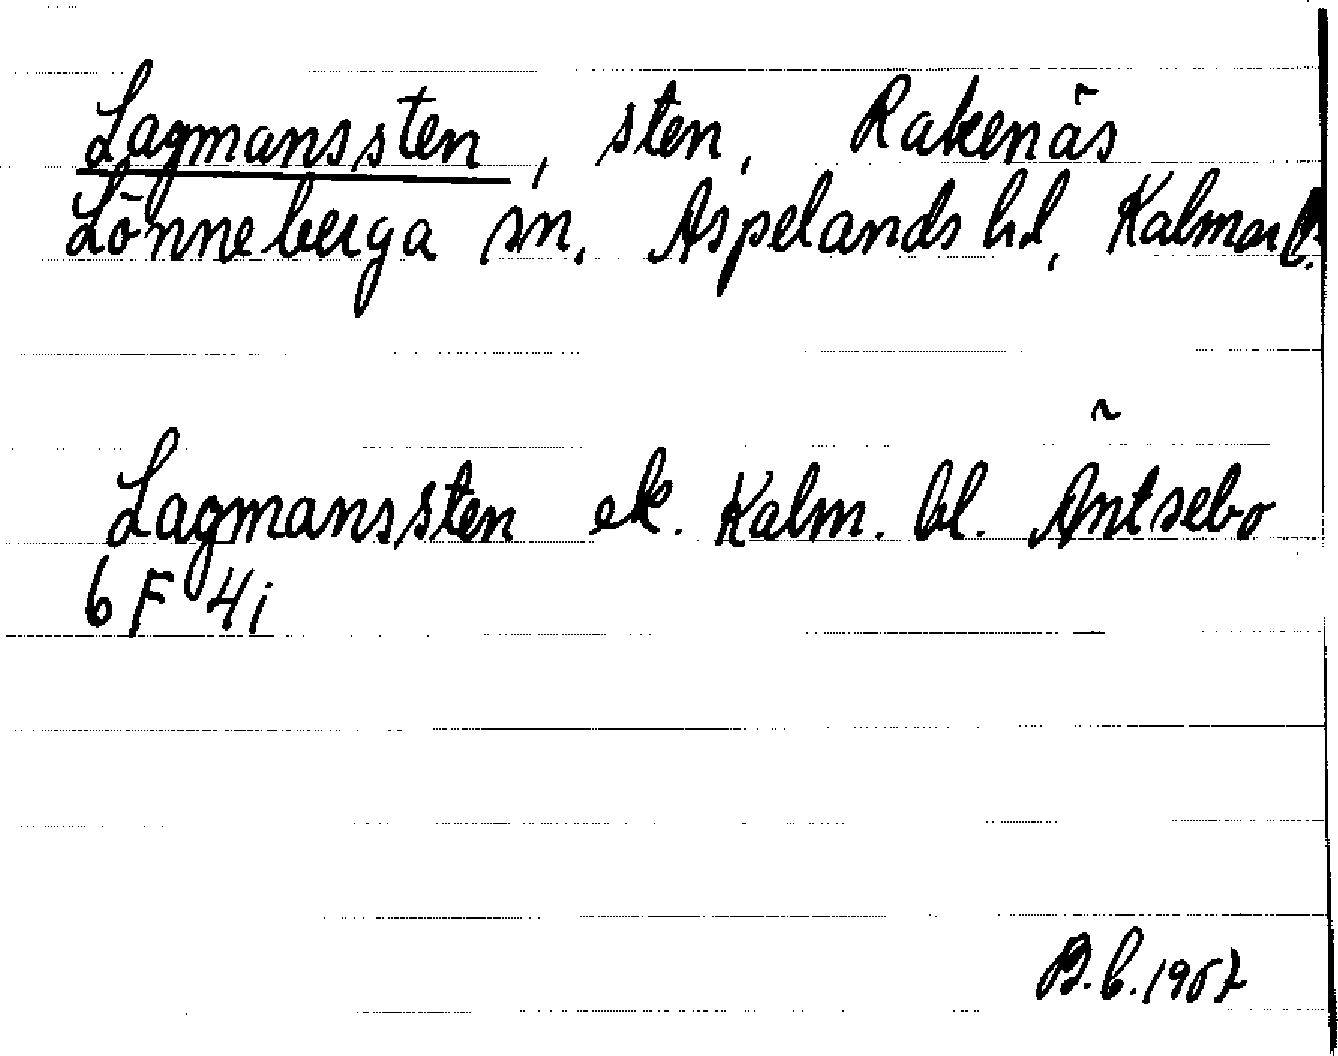 Lagmanssten, sten, Rakenäs
Lönneberga sn. Aspelands hd, Kalmar l.
Lagmanssten ek. Kalm. bl. Äntsebo
6 F 4i
B.b. 1967